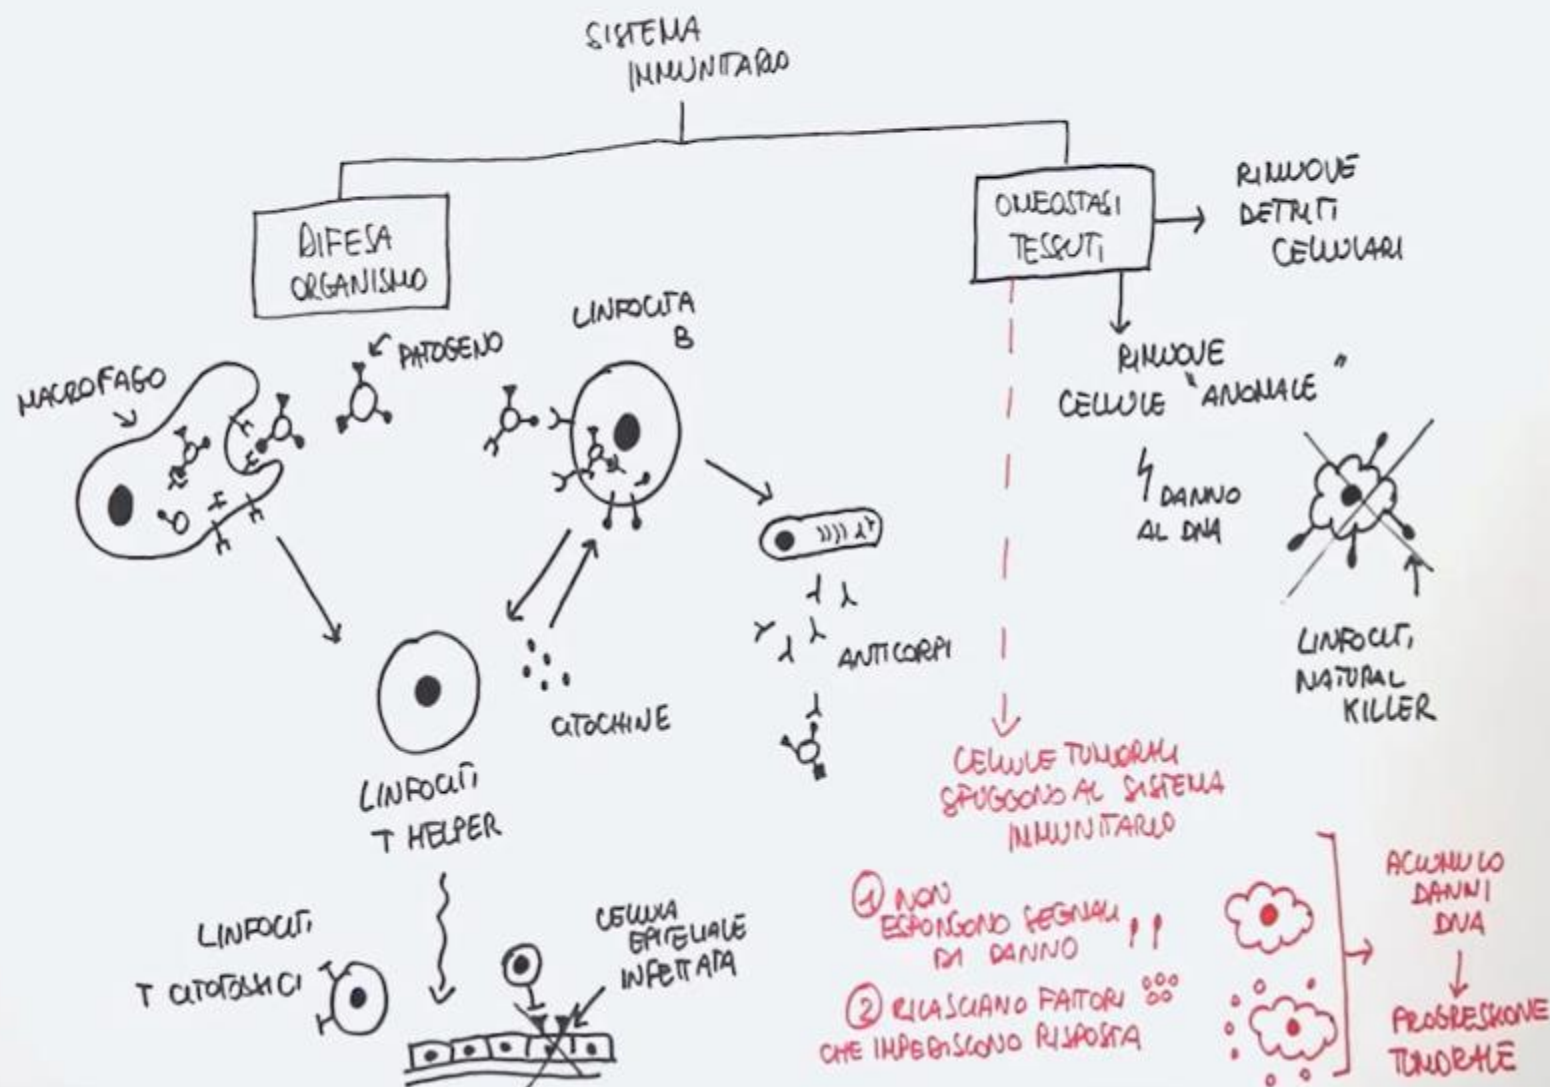 SISTEMA
IMMUNITARIO
DIFESA
ORGANISMO
OMEOSTASI
TESSUTI
RIMUOVE
DETRITI
CELLULARI
MACROFAGO
PATOGENO
LINFOCITA
B
RIMUOVE
CELLULE "ANOMALE"
DANNO
AL DNA
LINFOCITI
NATURAL
KILLER
ANTICORPI
CITOCHINE
LINFOCITI
T HELPER
LINFOCITI
T CITOTOSSICI
CELLULA
EPITELIALE
INFETTATA
CELLULE TUMORALI
SFUGGONO AL SISTEMA
IMMUNITARIO
1 NON
ESPONGONO SEGNALI
DI DANNO
2 RILASCIANO FATTORI
CHE IMPEDISCONO RISPOSTA
ACCUMULO
DANNI
DNA
PROGRESSIONE
TUMORALE